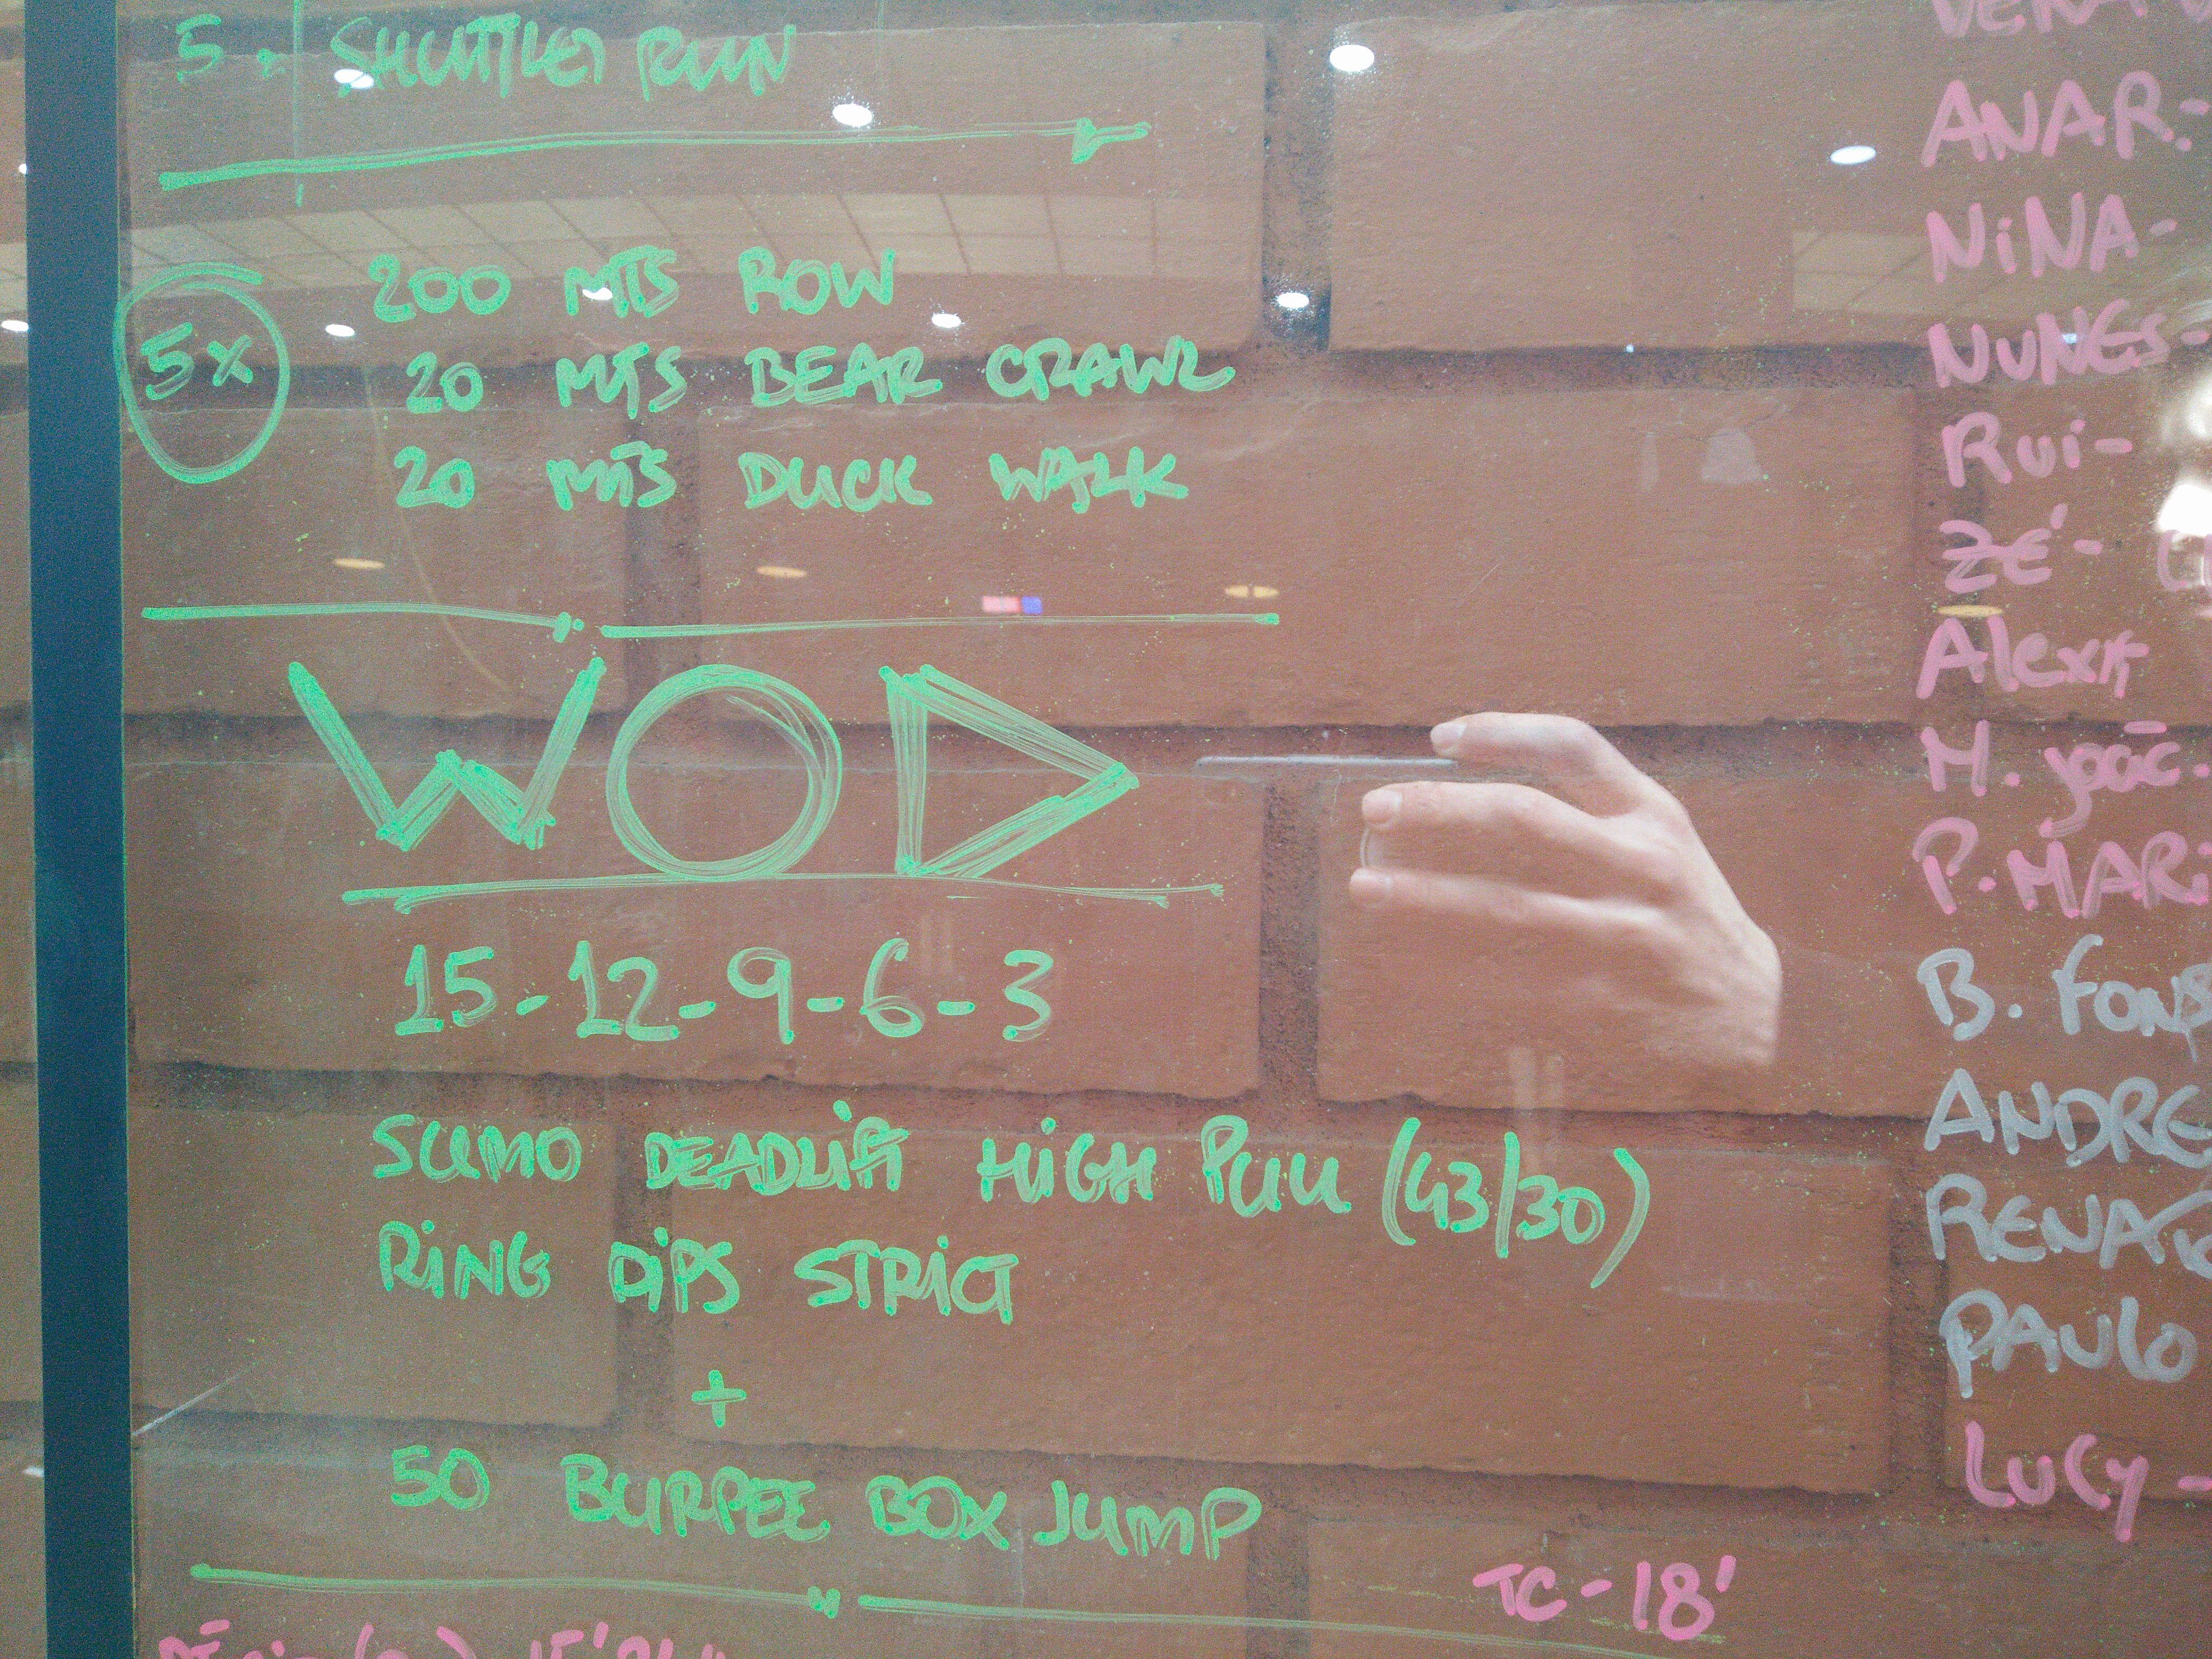 5 - SHUTTLE RUN
5x
200 MTS ROW
20 MTS BEAR CRAWL
20 MTS DUCK WALK
WOD
15-12-9-6-3
SUMO DEADLIFT HIGH PULL (43/30)
RING DIPS STRICT
+
50 BURPEE BOX JUMP
TC-18'
ANAR.-
NiNA-
NUNES-
Rui-
ZÉ-
Alex
M. João-
P. MARi
B. FONS
ANDRE
RENA
PAULO
LUCY-